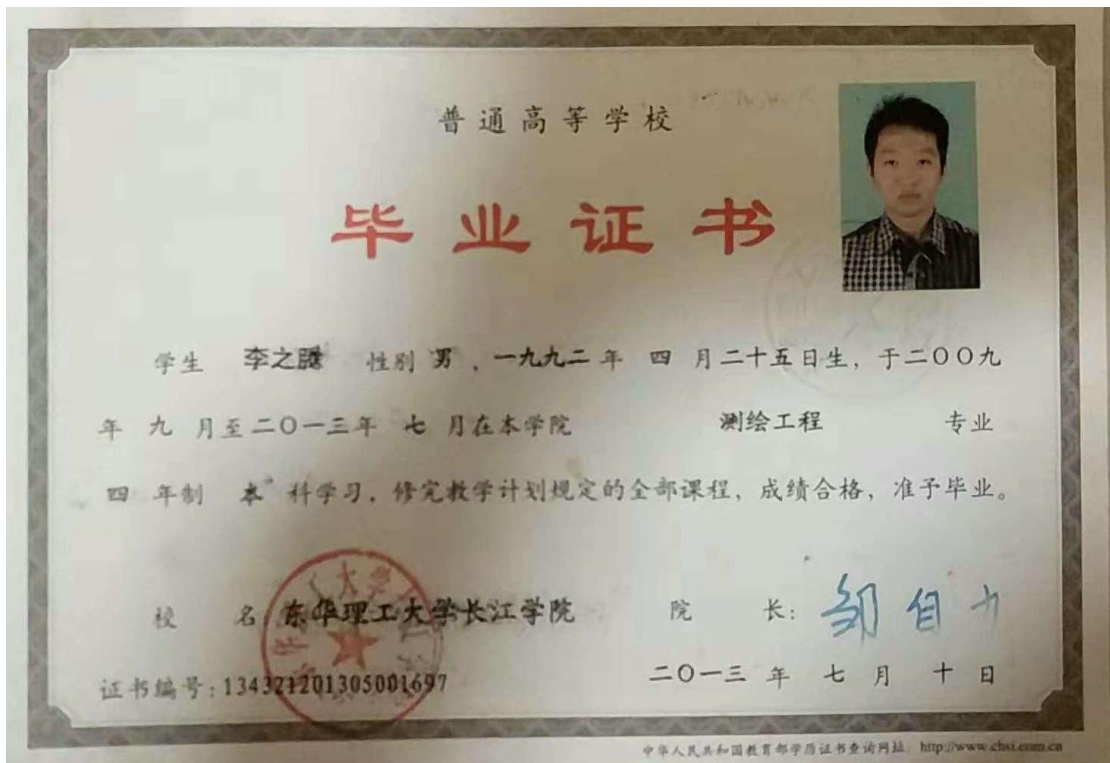 普通高等学校
毕业证书
学生 李之腾 性别 男，一九九二年 四 月二十五日生，于二〇〇九
年 九 月至二〇一三年 七 月在本学院 测绘工程 专业
四 年制 本 科学习，修完教学计划规定的全部课程，成绩合格，准予毕业。
校 名：东华理工大学长江学院 院 长：邹自力
证书编号：134321201305001697 二〇一三 年 七 月 十 日
中华人民共和国教育部学历证书查询网址：http://www.chsi.com.cn